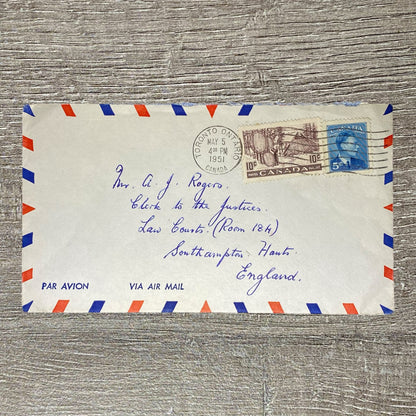 TORONTO, ONTARIO
MAY 5
4 30 PM
1951
CANADA
10¢ 10¢
CANADA
5
Mr. A. J. Rogers.
Clerk to the Justices.
Law Courts. (Room 184)
Southampton. Hants.
England.
PAR AVION VIA AIR MAIL